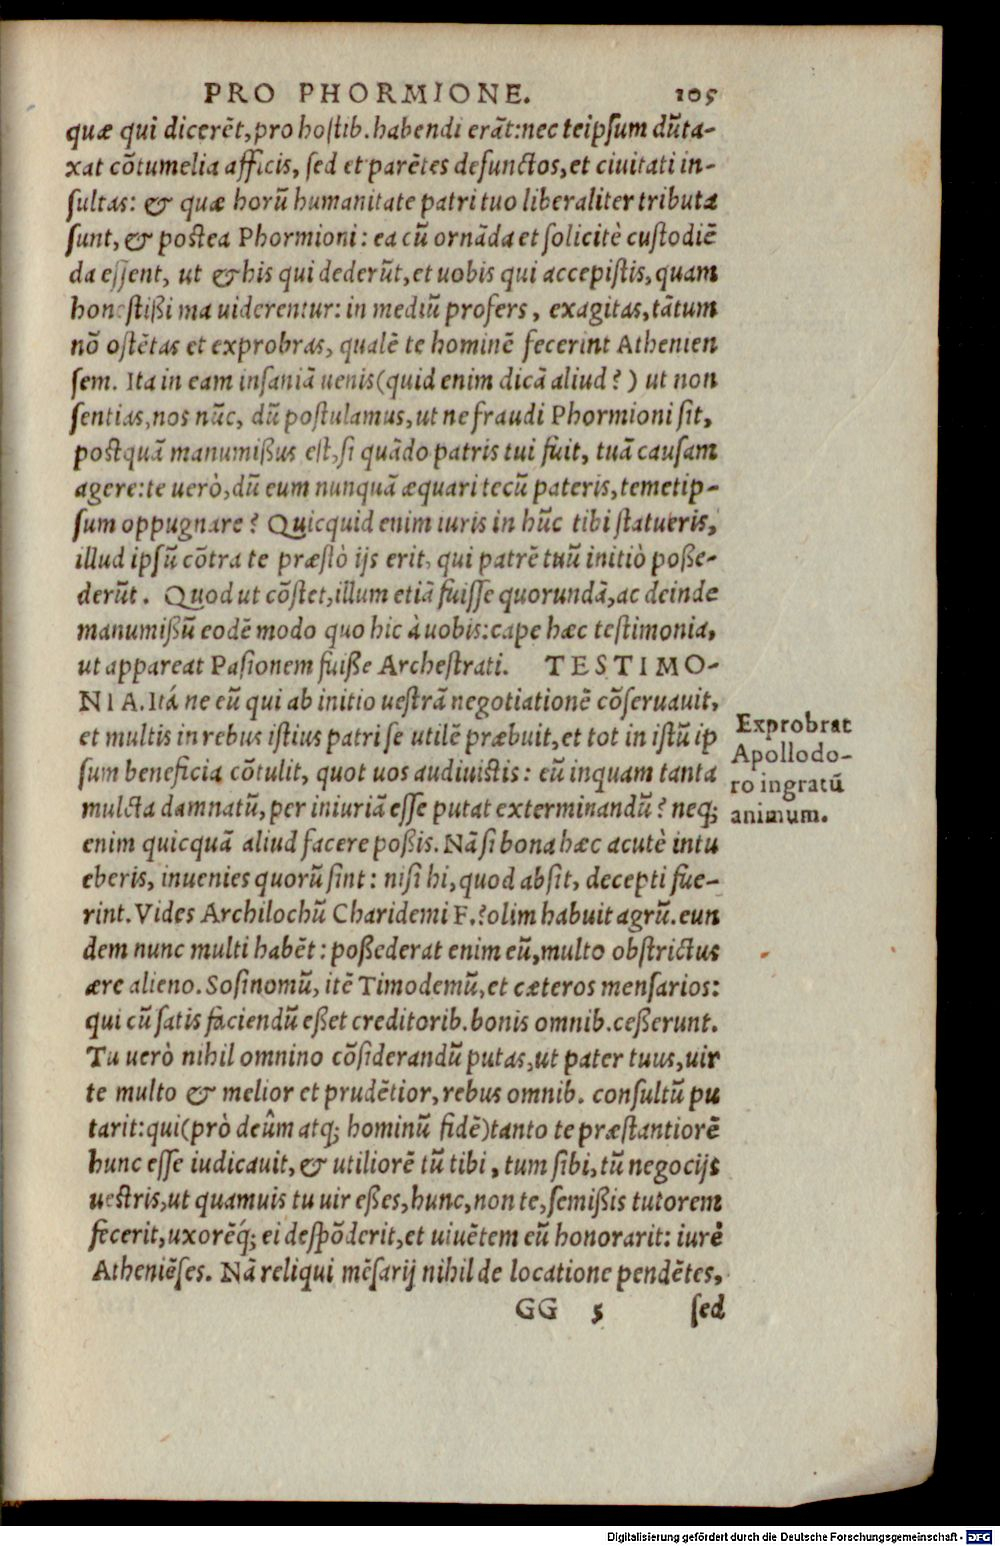 PRO PHORMIONE. 105
quæ qui dicerẽt, pro hostib. habendi erãt: nec teipsum dũta-
xat cõtumelia afficis, sed et parẽtes defunctos, et ciuitati in-
sultas: & quæ horũ humanitate patri tuo liberaliter tributa
sunt, & postea Phormioni: ea cũ ornãda et solicitè custodiẽ
da essent, ut & his qui dederũt, et uobis qui accepistis, quam
honestißima uiderentur: in mediũ profers, exagitas, tãtum
nõ ostẽtas et exprobras, qualẽ te hominẽ fecerint Athenien
sem. Ita in eam insaniã uenis (quid enim dicã aliud?) ut non
sentias, nos nũc, dũ postulamus, ut ne fraudi Phormioni sit,
postquã manumißus est, si quãdo patris tui fuit, tuã causam
agere: te uerò, dũ eum nunquã æquari tecũ pateris, temetip-
sum oppugnare? Quicquid enim iuris in hũc tibi statueris,
illud ipsũ cõtra te præstò ijs erit, qui patrẽ tuũ initiò poße-
derũt. Quod ut cõstet, illum etiã fuisse quorundã, ac deinde
manumißũ eodẽ modo quo hic à uobis: cape hæc testimonia,
ut appareat Pasionem fuiße Archestrati. TESTIMO-
NIA. Itá ne eũ qui ab initio uestrã negotiationẽ cõseruauit,
et multis in rebus istius patri se utilẽ præbuit, et tot in istũ ip
sum beneficia cõtulit, quot uos audiuistis: eũ inquam tanta
mulcta damnatũ, per iniuriã esse putat exterminandũ? neq;
enim quicquã aliud facere poßis. Nã si bona hæc acutè intu
eberis, inuenies quorũ sint: nisi hi, quod absit, decepti fue-
rint. Vides Archilochũ Charidemi F.? olim habuit agrũ. eun
dem nunc multi habẽt: poßederat enim eũ, multo obstrictus
ære alieno. Sosinomũ, itẽ Timodemũ, et cæteros mensarios:
qui cũ satis faciendũ eßet creditorib. bonis omnib. ceßerunt.
Tu uerò nihil omnino cõsiderandũ putas, ut pater tuus, uir
te multo & melior et prudẽtior, rebus omnib. consultũ pu
tarit: qui (prò deûm atq; hominũ fidẽ) tanto te præstantiorẽ
hunc esse iudicauit, & utiliorẽ tũ tibi, tum sibi, tũ negocijs
uestris, ut quamuis tu uir eßes, hunc, non te, semißis tutorem
fecerit, uxorẽq́; ei despõderit, et uiuẽtem eũ honorarit: iure
Atheniẽses. Nã reliqui mẽsarij nihil de locatione pendẽtes,
GG 5 sed
Exprobrat
Apollodo-
ro ingratũ
animum.
Digitalisierung gefördert durch die Deutsche Forschungsgemeinschaft - DFG